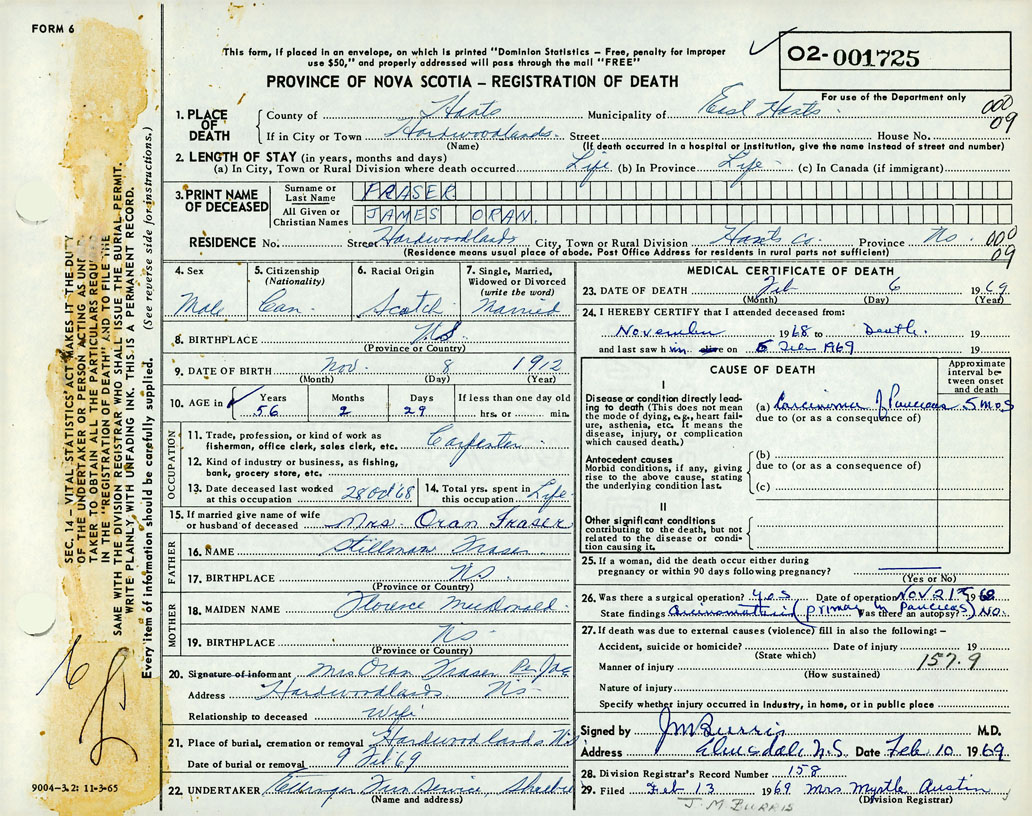 FORM 6
This form, if placed in an envelope, on which is printed "Dominion Statistics – Free, penalty for improper
use $50," and properly addressed will pass through the mail "FREE"
PROVINCE OF NOVA SCOTIA – REGISTRATION OF DEATH
02-001725
For use of the Department only
1. PLACE OF DEATH
County of Hants Municipality of East Hants 000
If in City or Town Hardwoodlands Street House No. 09
(Name) (If death occurred in a hospital or institution, give the name instead of street and number)
2. LENGTH OF STAY (in years, months and days)
(a) In City, Town or Rural Division where death occurred Life (b) In Province Life (c) In Canada (if immigrant)
3. PRINT NAME OF DECEASED
Surname or Last Name FRASER
All Given or Christian Names JAMES ORAN.
RESIDENCE No. Street Hardwoodlands City, Town or Rural Division Hants Co. Province NS. 000
(Residence means usual place of abode. Post Office Address for residents in rural parts not sufficient) 09
4. Sex
Male
5. Citizenship
(Nationality)
Can.
6. Racial Origin
Scotch
7. Single, Married,
Widowed or Divorced
(write the word)
Married
8. BIRTHPLACE N.S
(Province or Country)
9. DATE OF BIRTH Nov. 8 1912
(Month) (Day) (Year)
10. AGE in Years Months Days If less than one day old
56 2 29 hrs. or min.
OCCUPATION
11. Trade, profession, or kind of work as
fisherman, office clerk, sales clerk, etc. Carpenter
12. Kind of industry or business, as fishing,
bank, grocery store, etc.
13. Date deceased last worked
at this occupation 28 Oct '68
14. Total yrs. spent in
this occupation Life
15. If married give name of wife
or husband of deceased Mrs. Oran Fraser
FATHER
16. NAME Stillman Fraser
17. BIRTHPLACE NS.
(Province or Country)
MOTHER
18. MAIDEN NAME Florence McDonald
19. BIRTHPLACE NS
(Province or Country)
20. Signature of informant Mrs Oran Fraser Per
Address Hardwoodlands NS
Relationship to deceased Wife
21. Place of burial, cremation or removal Hardwoodlands NS
Date of burial or removal 9 Feb 69
22. UNDERTAKER Ettinger Fun Service
(Name and address)
MEDICAL CERTIFICATE OF DEATH
23. DATE OF DEATH Feb 6 1969
(Month) (Day) (Year)
24. I HEREBY CERTIFY that I attended deceased from:
November 1968 to Death. 19
and last saw him alive on 5 Feb 1969 19
CAUSE OF DEATH
Approximate
interval be-
tween onset
and death
I
Disease or condition directly lead-
ing to death (This does not mean
the mode of dying, e.g., heart fail-
ure, asthenia, etc. It means the
disease, injury, or complication
which caused death.)
(a) Carcinoma of Pancreas 5 mos
due to (or as a consequence of)
Antecedent causes
Morbid conditions, if any, giving
rise to the above cause, stating
the underlying condition last.
(b)
due to (or as a consequence of)
(c)
II
Other significant conditions
contributing to the death, but not
related to the disease or condi-
tion causing it.
25. If a woman, did the death occur either during
pregnancy or within 90 days following pregnancy?
(Yes or No)
26. Was there a surgical operation? Yes Date of operation Nov 21 1968
State findings (primary in Pancreas) Was there an autopsy? No.
27. If death was due to external causes (violence) fill in also the following: –
Accident, suicide or homicide? Date of injury 19
(State which)
Manner of injury 157.9
(How sustained)
Nature of injury
Specify whether injury occurred in industry, in home, or in public place
Signed by JM Burris M.D.
Address Elmsdale, N.S. Date Feb 10 1969
28. Division Registrar's Record Number 158
29. Filed Feb 13 1969 Mrs Myrtle Austin
(Division Registrar)
J. M. BURRIS
SEC. 14 – VITAL STATISTICS' ACT MAKES IT THE DUTY
OF THE UNDERTAKER OR PERSON ACTING AS UND
TAKER TO OBTAIN ALL THE PARTICULARS REQU
IN THE "REGISTRATION OF DEATH" AND TO FILE THE
SAME WITH THE DIVISION REGISTRAR WHO SHALL ISSUE THE BURIAL PERMIT.
WRITE PLAINLY WITH UNFADING INK. THIS IS A PERMANENT RECORD.
Every item of information should be carefully supplied. (See reverse side for instructions.)
9004-3.2: 11-3-65